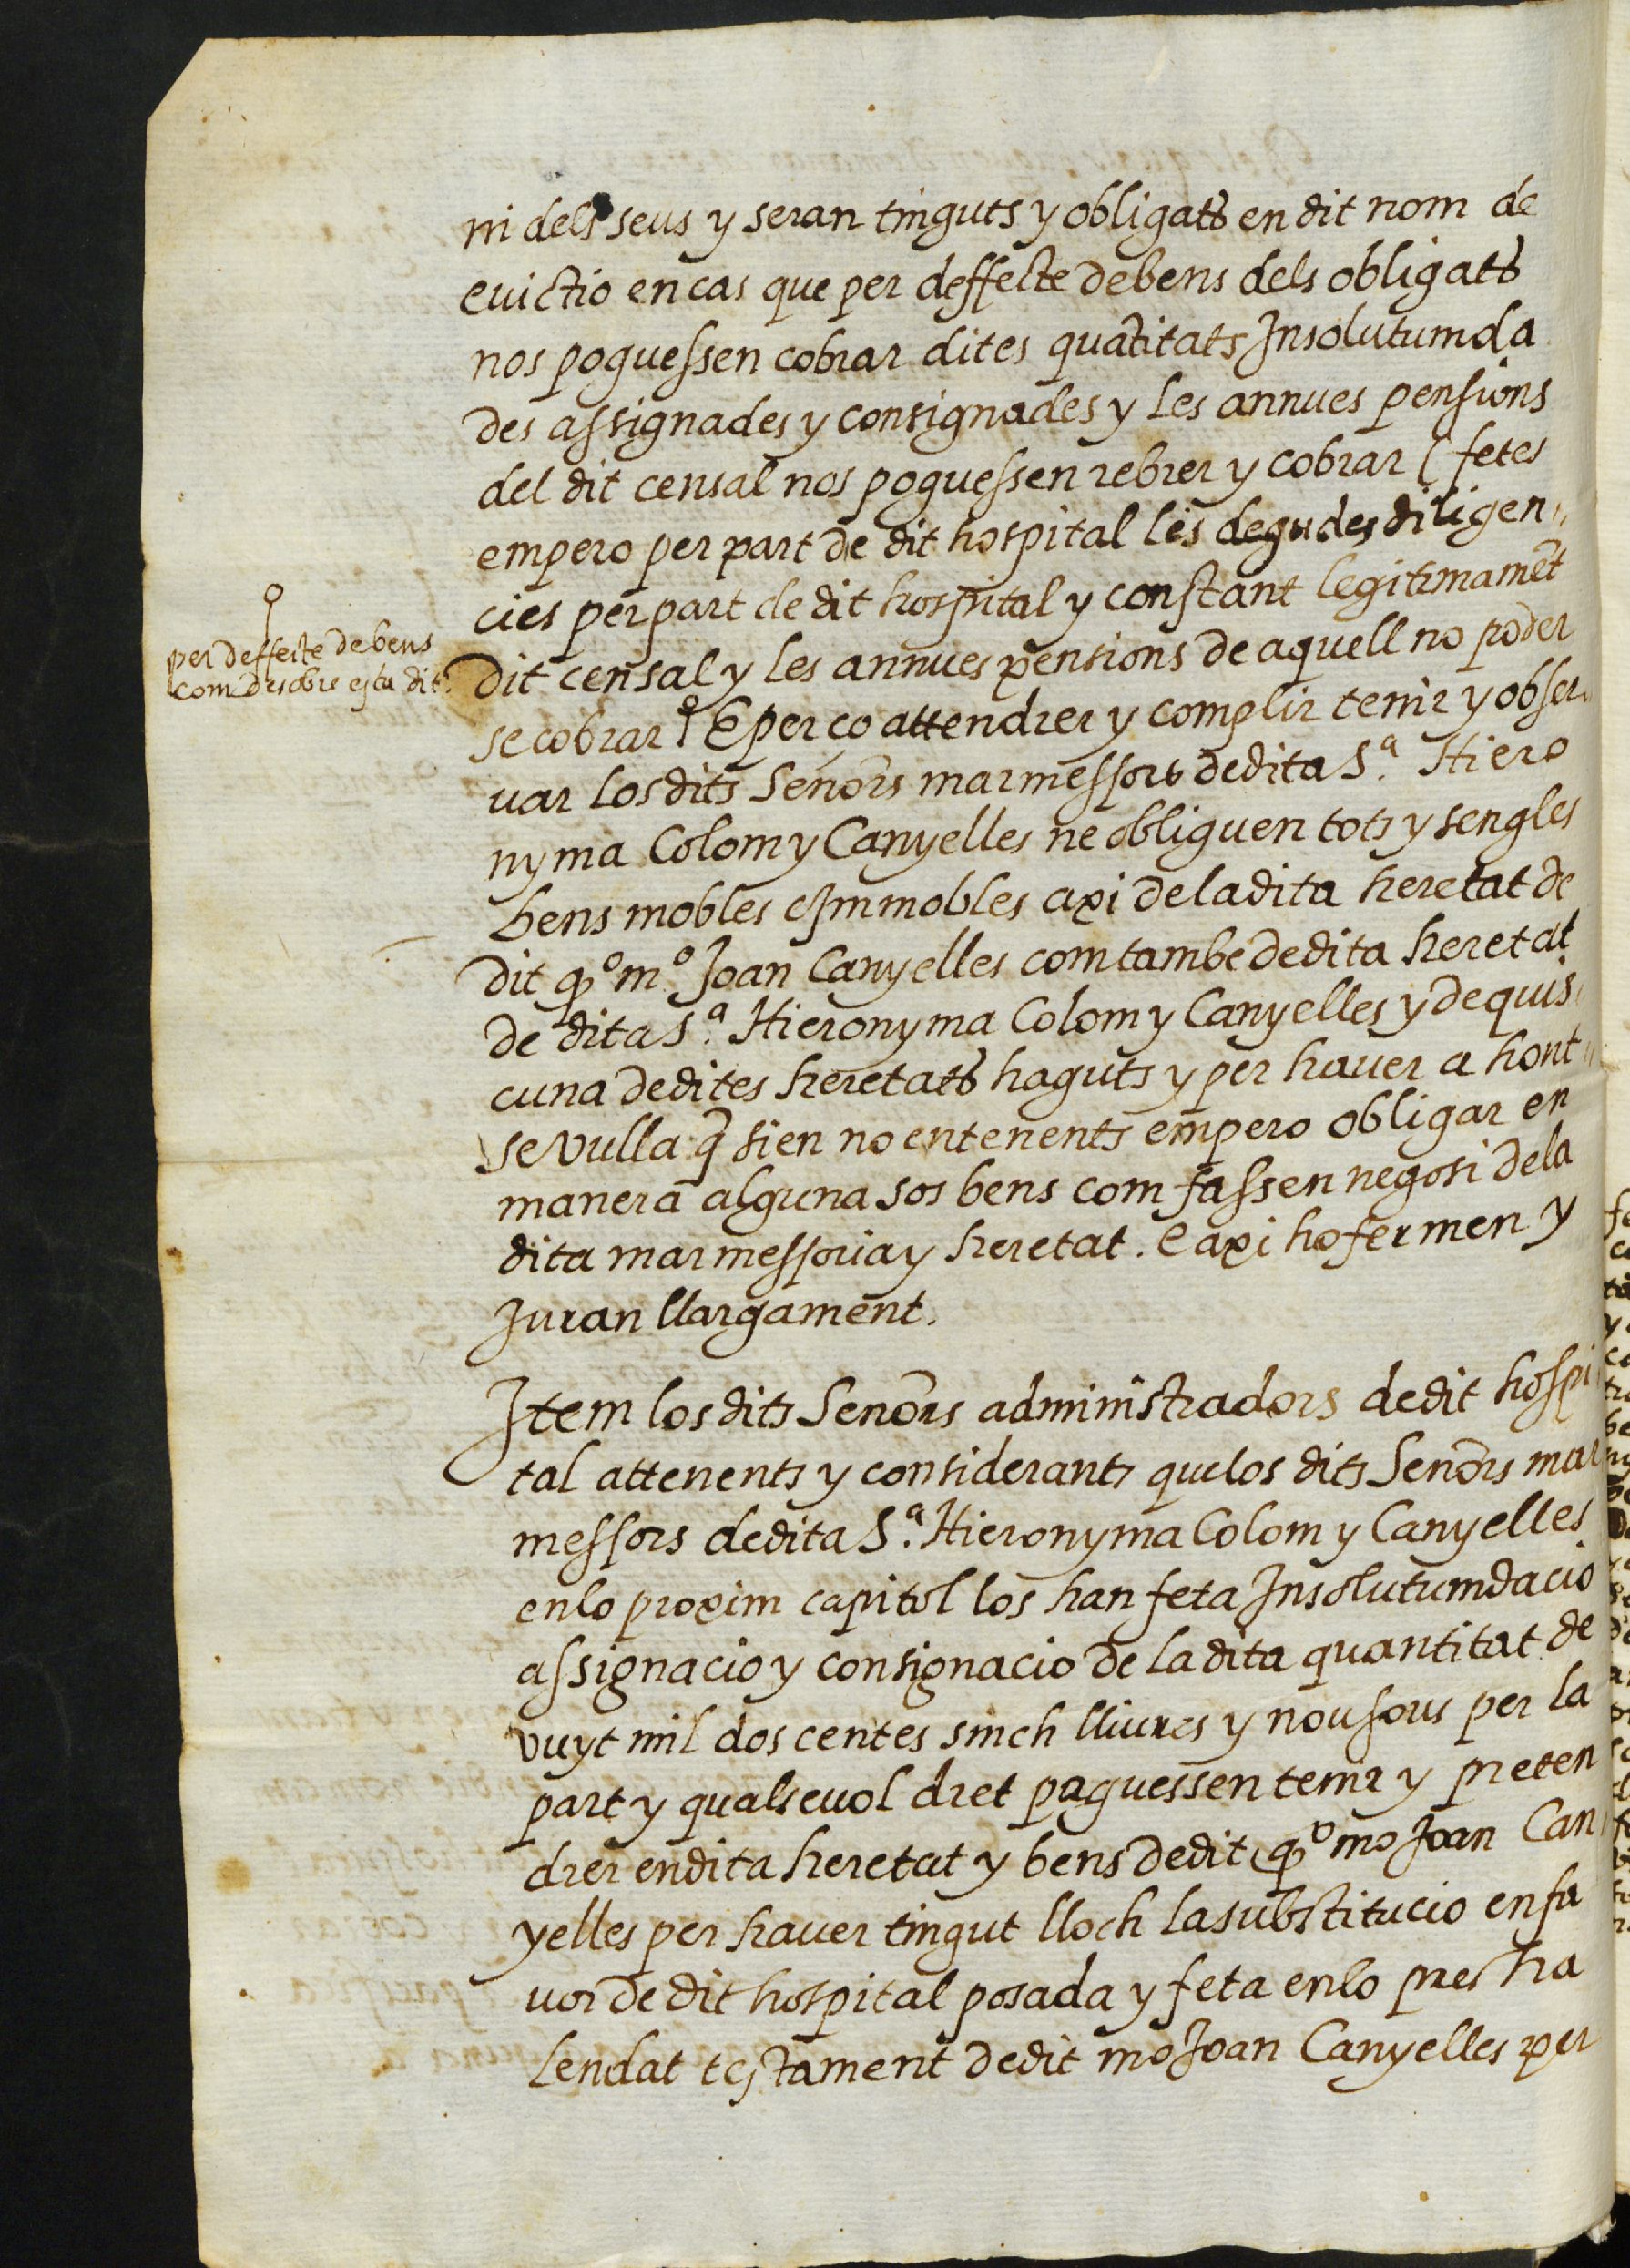 ni dels seus y seran tinguts y obligats en dit nom de
euictio en cas que per deffecte de bens dels obligats
nos poguessen cobrar dites quātitats Insolutumda
des assignades y consignades y les annues pensions
del dit censal nos poguessen rebrer y cobrar ( fetes
empero per part de dit hospital les degudes diligen„
cies per part de dit hospital y constant legitimamēt
per deffecte de bens
com desobre esta dit.
dit censal y les annues pensions de aquell no poder
se cobrar E per ço attendrer y complir tenir y obser„
uar los dits Senōrs marmessors de dita S.ª Hiero
nyma Colom y Canyelles ne obliguen tots y sengles
bens mobles e Immobles axi de la dita heretat de
dit qº mº Joan Canyelles com tambe de dita heretat
de dita S.ª Hieronyma Colom y Canyelles y de quis„
cuna de dites heretats haguts y per hauer a hont„
se vulla q̄ sien no entenents empero obligar en
manera alguna sos bens com fassen negosi de la
dita marmessoria y heretat. E axi ho fermen y
Juran llargament.
Item los dits Senōrs administradors de dit hospi
tal attenents y considerants que los dits Senōrs mar
messors de dita S.ª Hieronyma Colom y Canyelles
en lo proxim capitol los han feta Insolutumdacio
assignacio y consignacio de la dita quantitat de
vuyt mil dos centes sinch lliures y nou sous per la
part y qualseuol dret poguessen tenir y preten
drer en dita heretat y bens de dit qº mº Joan Can
yelles per hauer tingut lloch la substitucio en fa
uor de dit hospital posada y feta en lo prestha
lendat testament de dit mº Joan Canyelles per